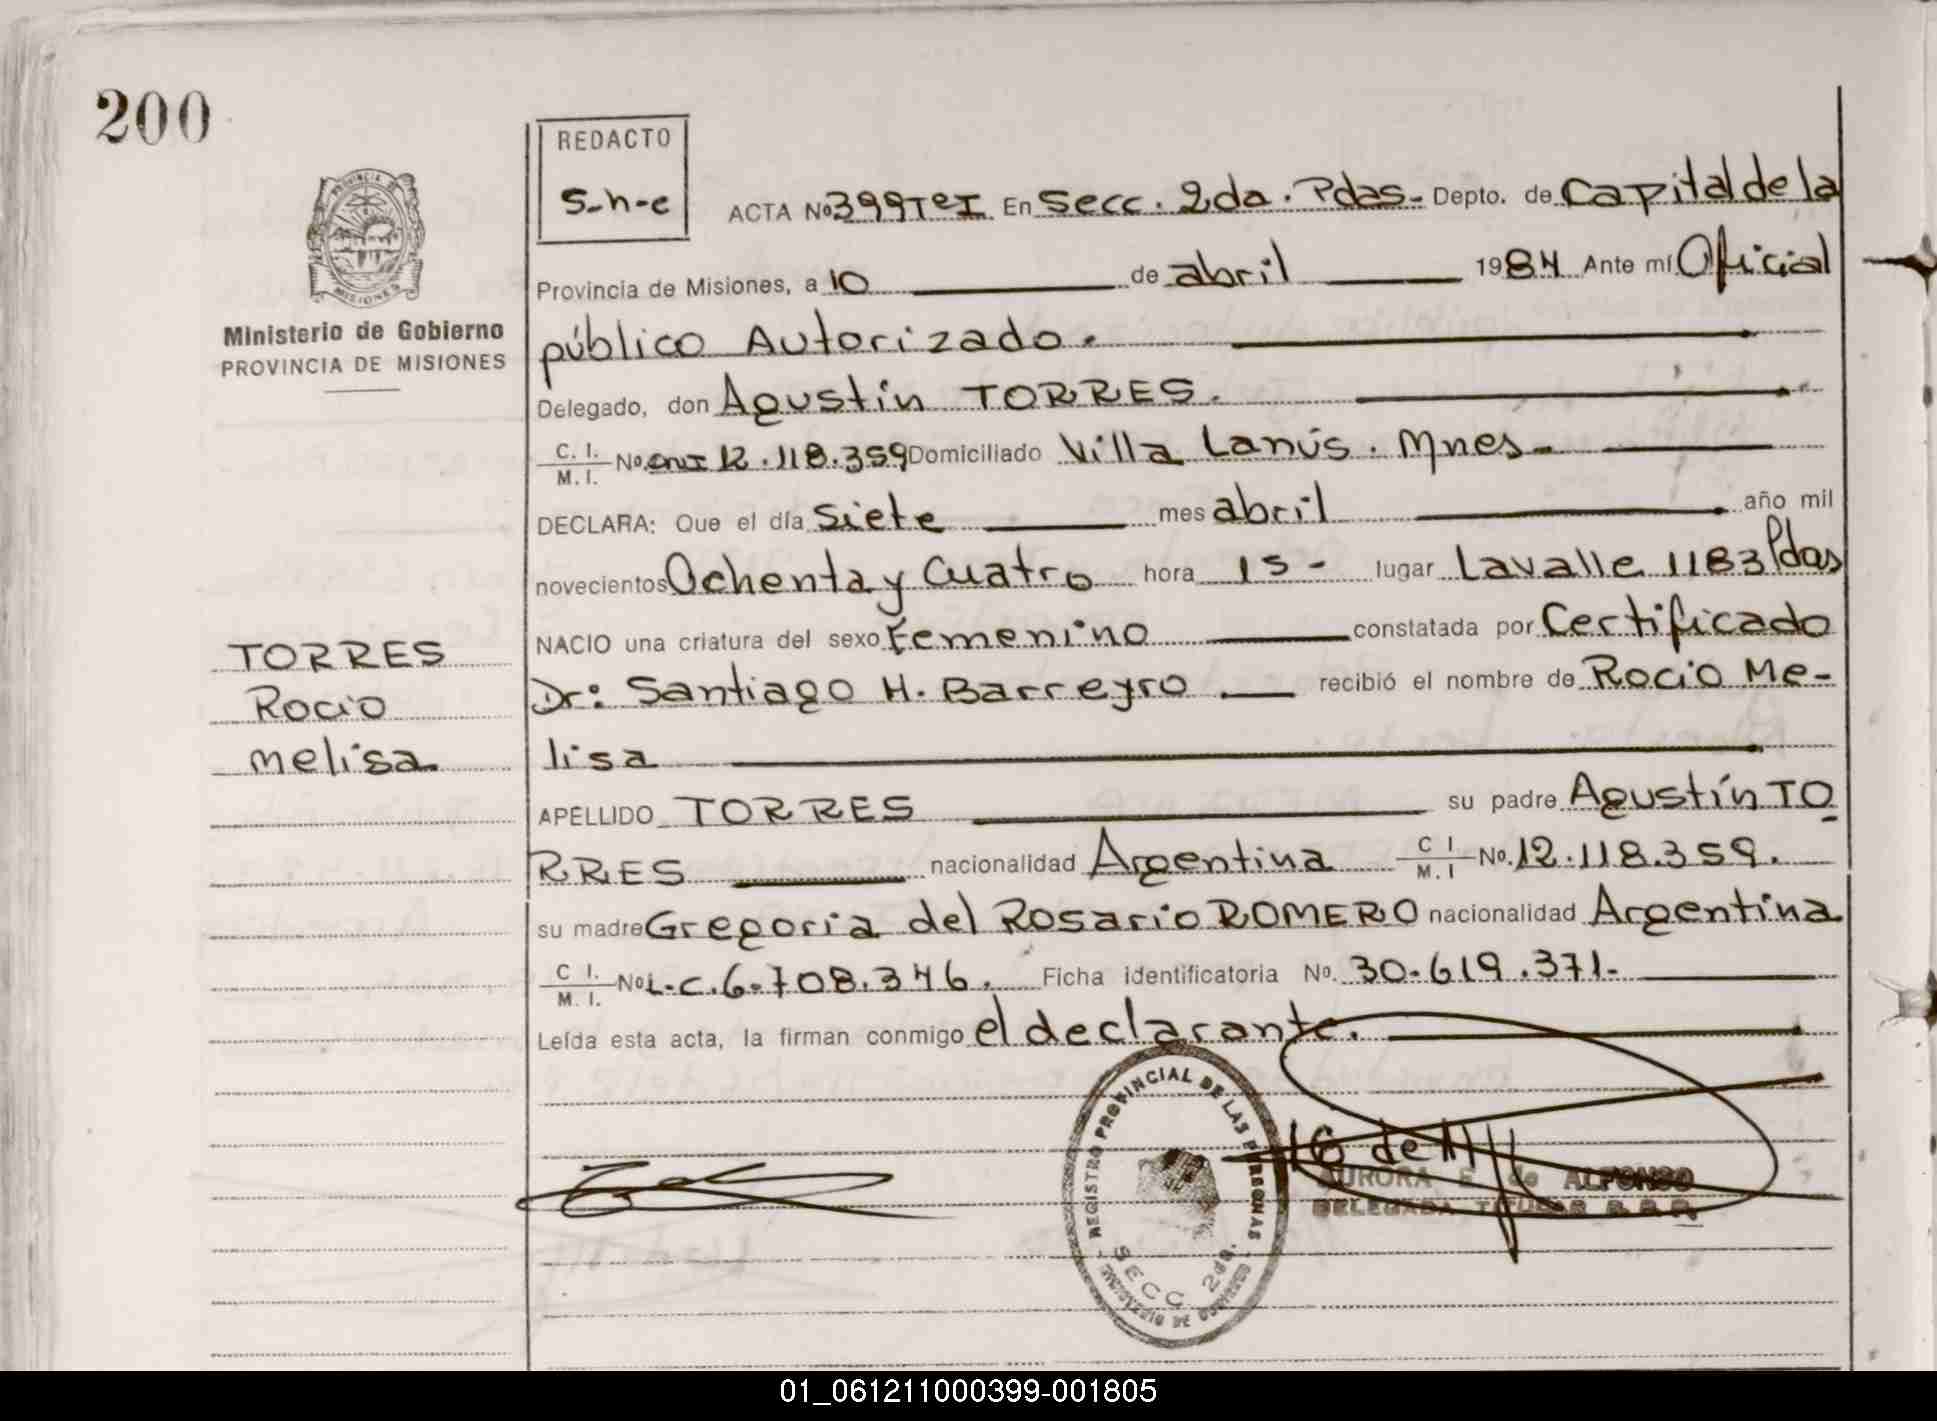 200
REDACTO
S-h-e
ACTA No 399 Tº I En Secc. 2da. Pdas- Depto. de Capital de la
PROVINCIA DE
MISIONES
Provincia de Misiones, a 10 de abril 1984 Ante mí Oficial
Ministerio de Gobierno
PROVINCIA DE MISIONES
público Autorizado.
Delegado, don Agustín TORRES.
C. I.
M. I. No. DNI 12.118.359 Domiciliado Villa Lanús. Mnes-
DECLARA: Que el día siete mes abril año mil
novecientos Ochenta y Cuatro hora 15- lugar Lavalle 1183 Pdas
NACIO una criatura del sexo Femenino constatada por Certificado
TORRES
Rocio
melisa
Dr: Santiago H. Barreyro recibió el nombre de Rocio Me-
lisa
APELLIDO TORRES su padre Agustín TO
RRES nacionalidad Argentina C I
M. I No. 12.118.359.
su madre Gregoria del Rosario ROMERO nacionalidad Argentina
C I.
M. I. No L.C. 6.708.346. Ficha identificatoria No. 30.619.371-
Leída esta acta, la firman conmigo el declarante.
REGISTRO PROVINCIAL DE LAS PERSONAS
SECC 2da.
MINISTERIO DE GOBIERNO
AURORA E. de ALFONSO
DELEGADA TITULAR
01_061211000399-001805